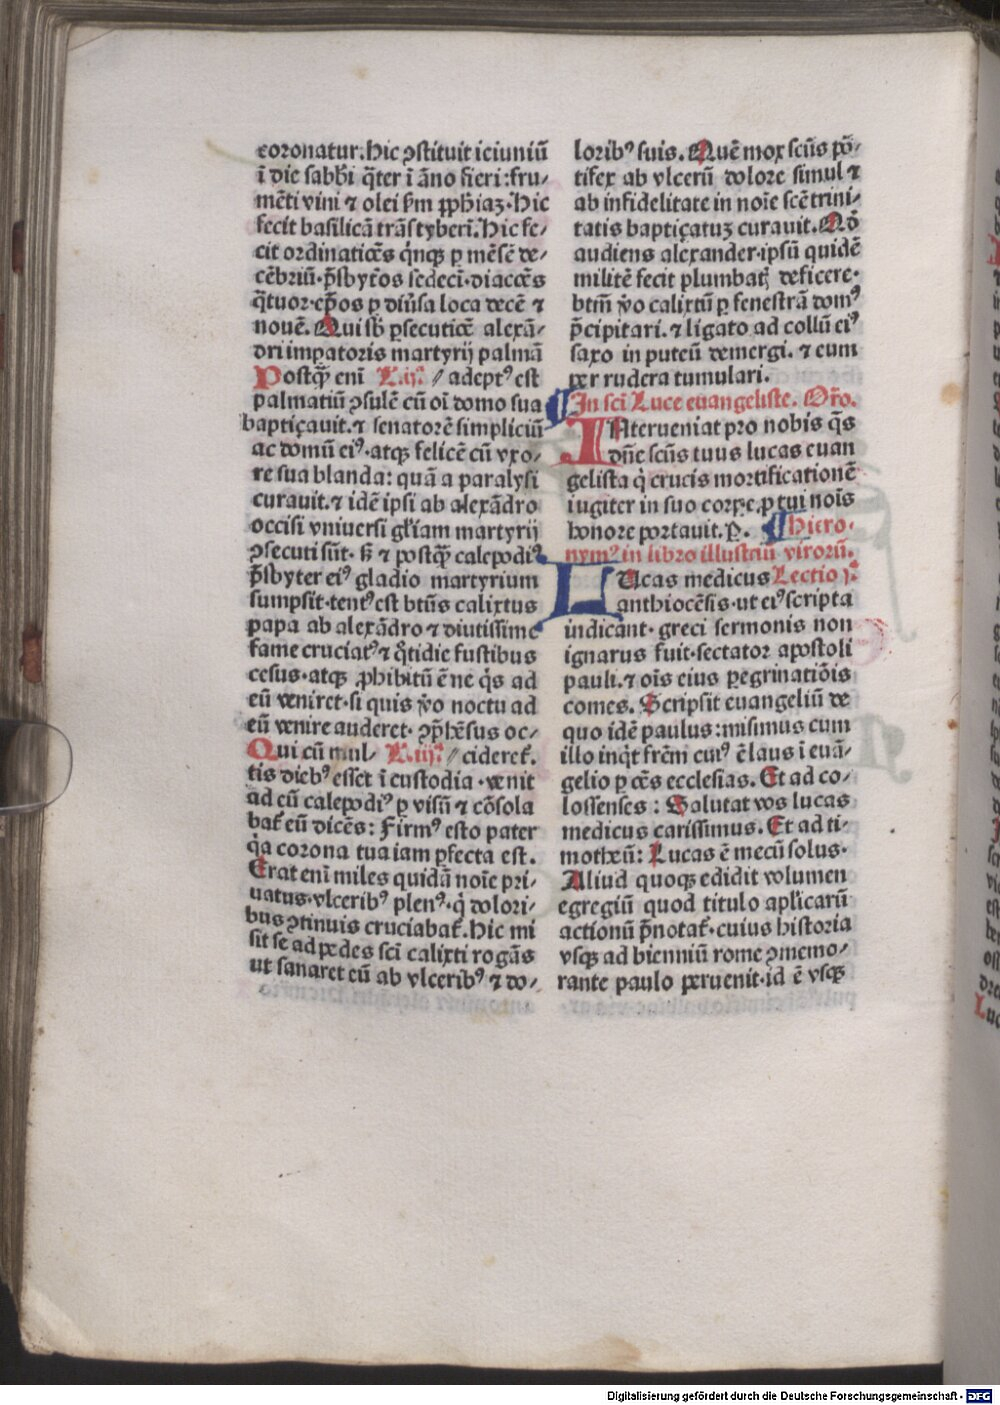 coronatur. Hic ꝯstituit ieiuniū
ī die sabb̄i q̄ter ī āno fieri: fru⸗
mēti vini ⁊ olei ẜm ꝓph̄iaꝫ. Hic
fecit basilicā trāstyberī. Hic fe⸗
cit ordinatiōes q̇nqꝫ ꝑ mēsē de⸗
cēbriū. p̄sbyt̄os sedeci. diacōes
q̄tuor. ep̄os ꝑ diūsa loca decē ⁊
nouē. Qui sb̄ ꝑsecutiōe alexā⸗
dri imꝑatoris martyrij palmā
Postq̄ȝ eni L.ij. // adeptꝰ est
palmatiū ꝯsulē cū oī domo sua
baptiçauit. ⁊ senatorē simpliciū
ac domū eiꝰ. atqꝫ felicē cū vxo⸗
re sua blanda: quā a paralysi
curauit. ⁊ idē ipsi ab alexādro
occisi vniuersi gl̄iam martyrij
ꝯsecuti sūt. Sꝫ ⁊ postq̄ȝ calepodiꝰ
p̄sbyter eiꝰ gladio martyrium
sumpsit. tentꝰ est btūs calixtus
papa ab alexādro ⁊ diutissime
fame cruciatꝰ ⁊ q̄tidie fustibus
cesus. atqꝫ ꝓhibitū ē ne q̇s ad
eū veniret. si quis v̄o noctu ad
eū venire auderet. ꝯp̄hēsus oc⸗
Qui cū mul⸗ L.iij. // cideret̄.
tis diebꝰ esset ī custodia. venit
ad eū calepodiꝰ ꝑ visū ⁊ cōsola
bat̄ eū dicēs: Firmꝰ esto pater
q̇a corona tua iam ꝑfecta est.
Erat eni miles quidā noīe pri⸗
uatus. vlceribꝰ plenꝰ. q̇ dolori⸗
bus ꝯtinuis cruciabat̄. Hic mi
sit se ad pedes sc̄i calixti rogās
ut sanaret eū ab vlceribꝰ ⁊ do⸗
loribꝰ suis. Quē mox sc̄us pō⸗
tifex ab vlcerū dolore simul ⁊
ab infidelitate in noīe sc̄e trini⸗
tatis baptiçatuꝫ curauit. Qd̄
audiens alexander. ipsū quidē
militē fecit plumbatꝭ deficere.
btm̄ v̄o calixtū ꝑ fenestrā domꝰ
p̄cipitari. ⁊ ligato ad collū eiꝰ
saxo in puteū demergi. ⁊ eum
per rudera tumulari.
¶ In sc̄i Luce euangeliste. Or̄o.
INterueniat pro nobis q̄s
dn̄e sc̄us tuus lucas euan
gelista q̇ crucis mortificationē
iugiter in suo corpe. ꝑ tui nois
honore portauit. P̄. ¶ Hiero.
nymꝰ in libro illustriū virorū.
LUcas medicus Lectio j.
anthiocēsis. ut eiꝰ scripta
indicant. greci sermonis non
ignarus fuit. sectator apostoli
pauli. ⁊ ois eius ꝑegrinatiōis
comes. Scripsit euangeliū de
quo idē paulus: misimus cum
illo inq̇t fr̄em cuiꝰ ē laus ī euā⸗
gelio ꝑ oēs ecclesias. Et ad co⸗
lossenses: Salutat vos lucas
medicus carissimus. Et ad ti⸗
motheū: Lucas ē mecū solus.
Aliud quoqꝫ edidit volumen
egregiū quod titulo apl̄icarū
actionū p̄notat̄. cuius historia
vsqꝫ ad bienniū rome ꝯmemo⸗
rante paulo peruenit. id ē vsqꝫ
Digitalisierung gefördert durch die Deutsche Forschungsgemeinschaft - DFG